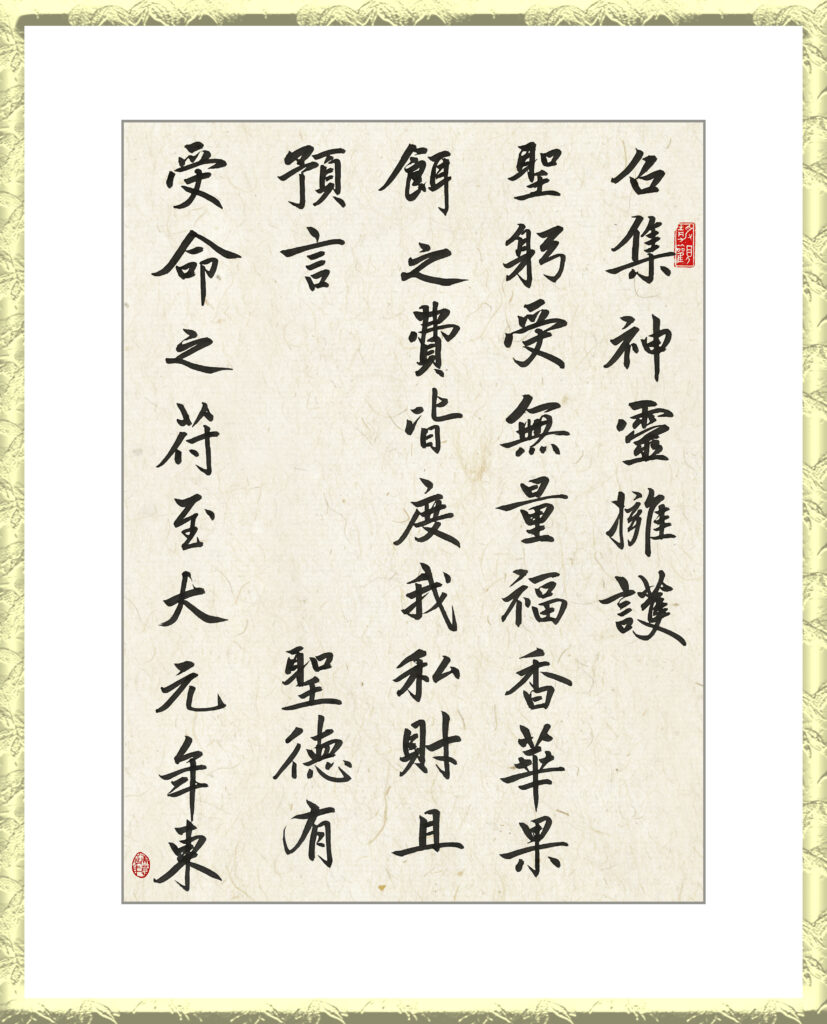 召集神靈擁護
聖躬受無量福香華果
餌之費皆度我私財且
預言 聖德有
受命之苻至大元年東